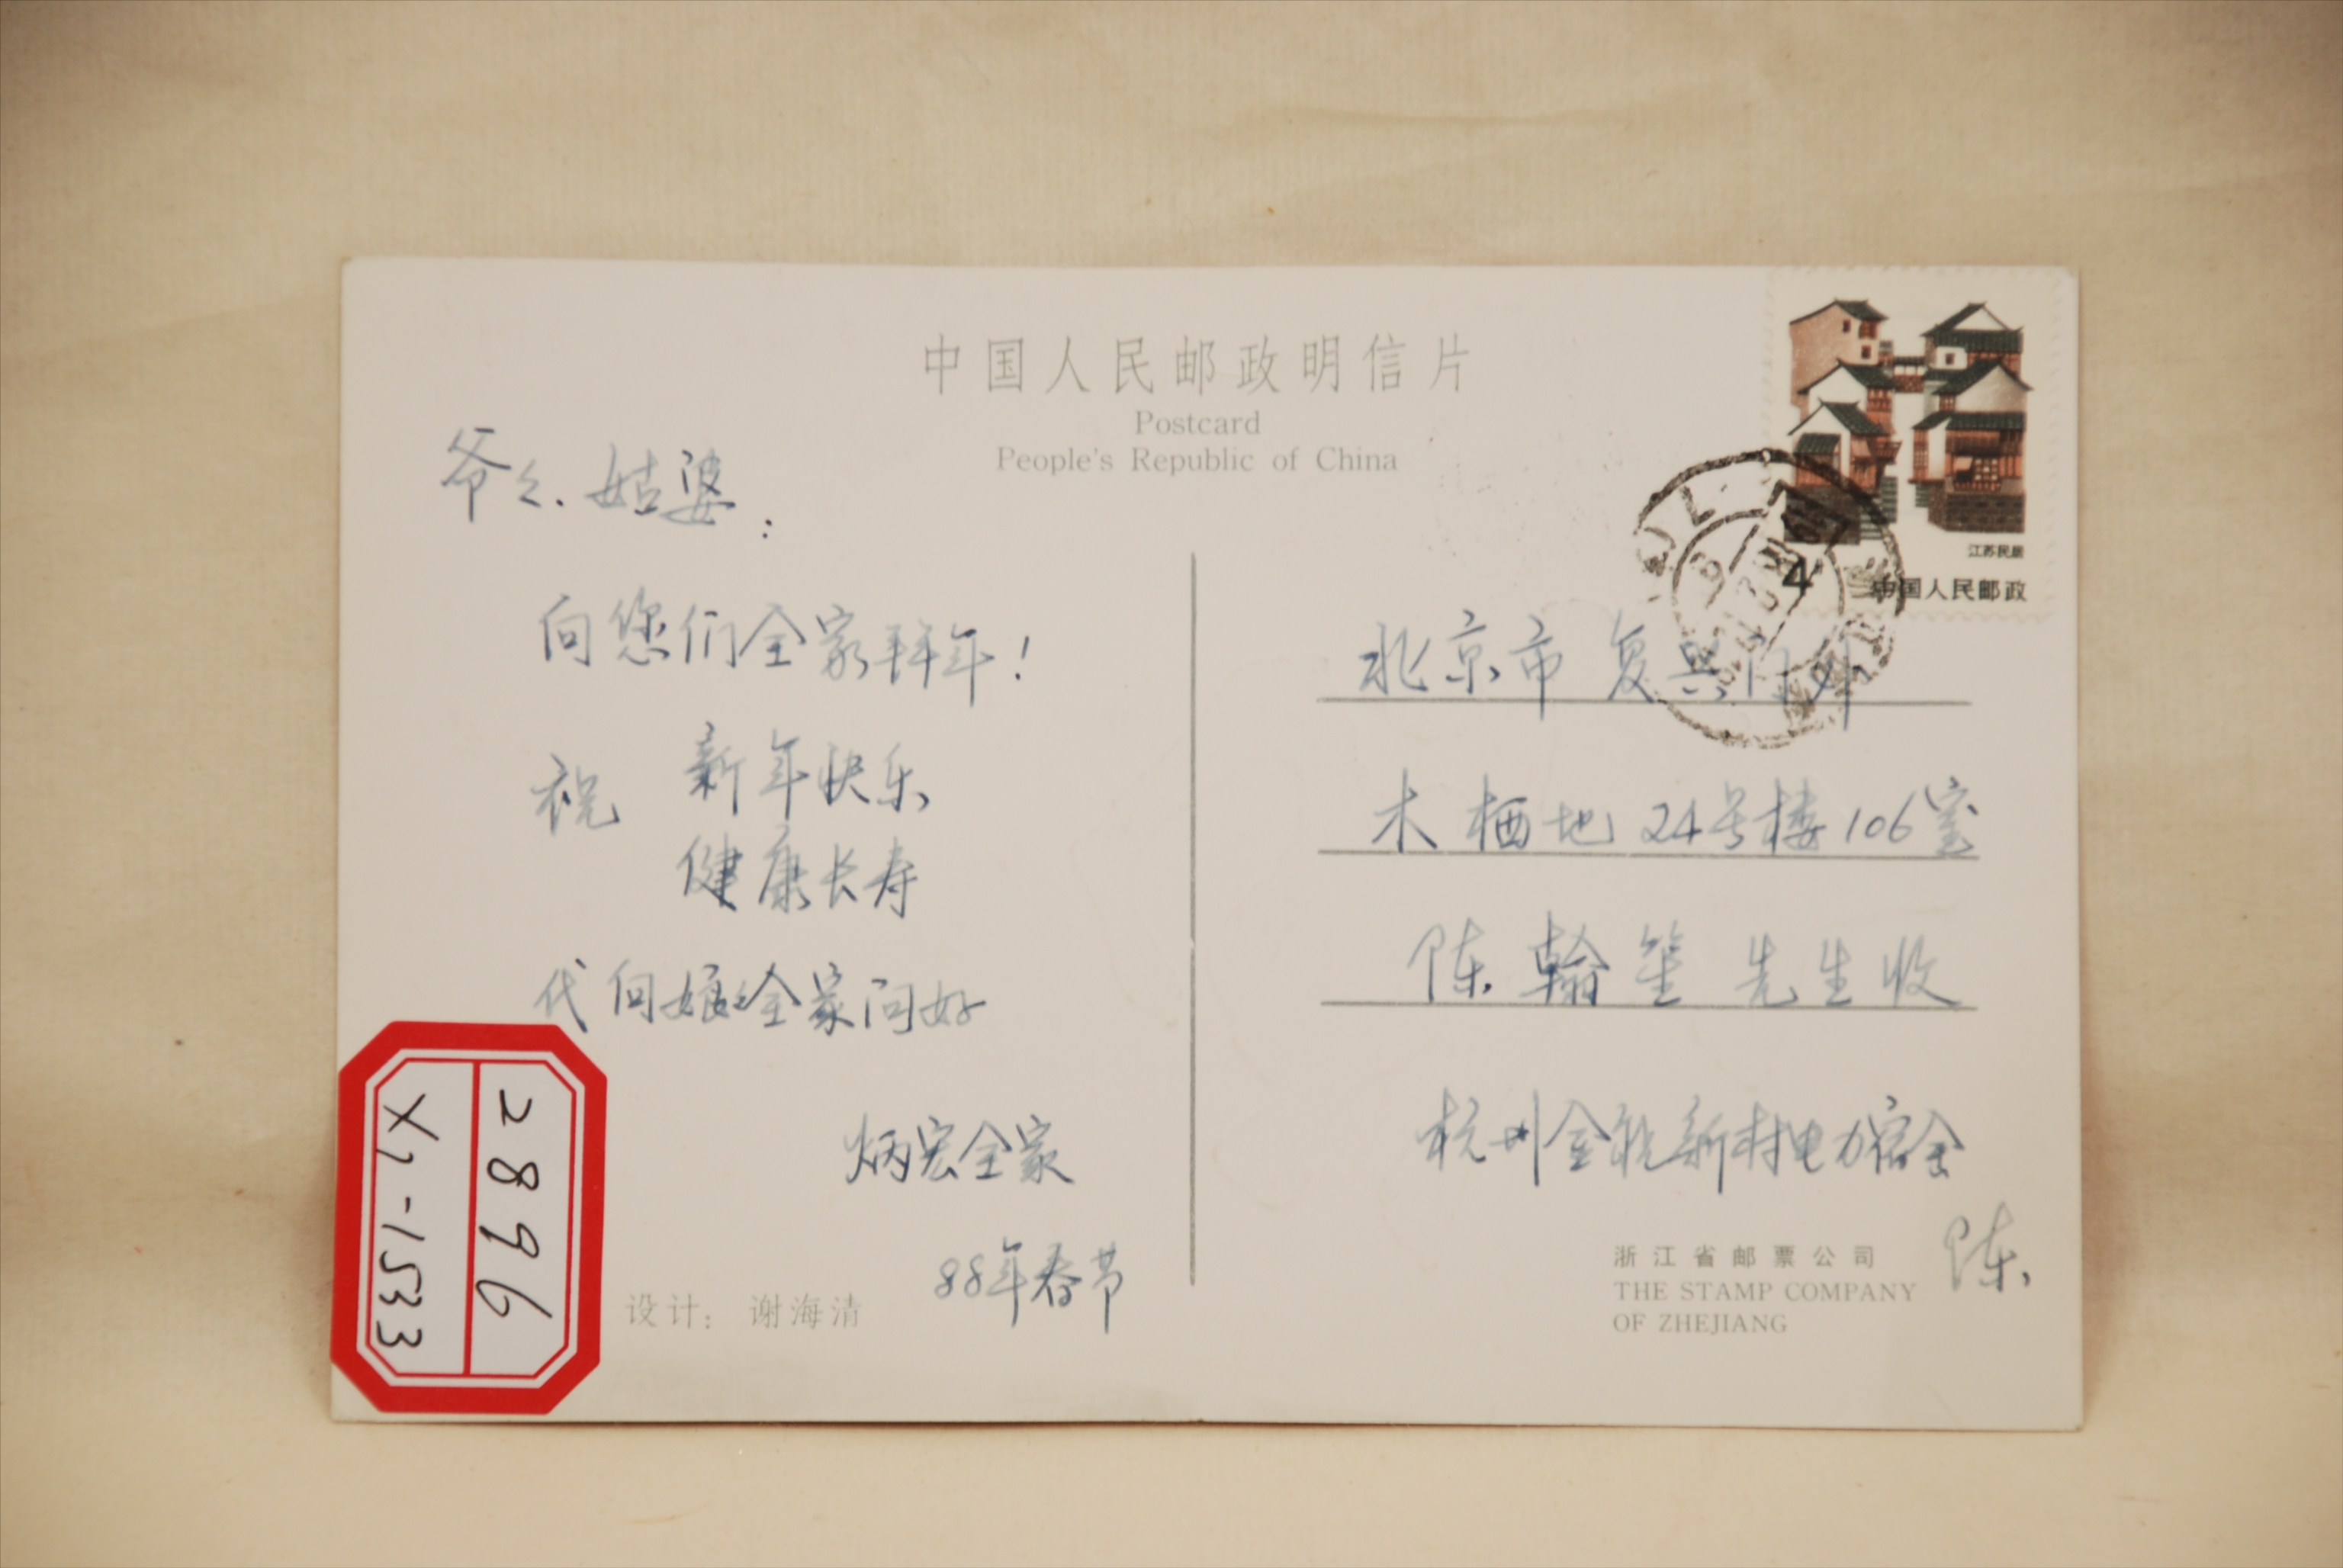 中国人民邮政明信片
Postcard
People's Republic of China
爷々、姑婆：
向您们全家拜年！
祝 新年快乐
健康长寿
代向娘々全家问好
炳宏全家
88年春节
设计：谢海清
2896
X1-1533
江苏民居
4
中国人民邮政
北京市复兴门外
木栖地24号楼106室
陈翰笙 先生收
杭州金祝新村电力宿舍
陈
浙江省邮票公司
THE STAMP COMPANY
OF ZHEJIANG